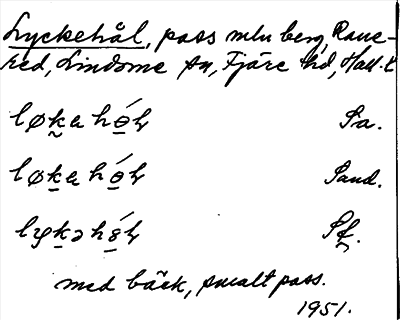 Lyckehål, pass mln berg, Rane-
red, Lindome sn, Fjäre hd, Hall. l
løka hó̱ɫ Sa.
løka hó̱ɫ Sand.
lykə hó̱ɫ Sf.
med bäck, smalt pass.
1951.